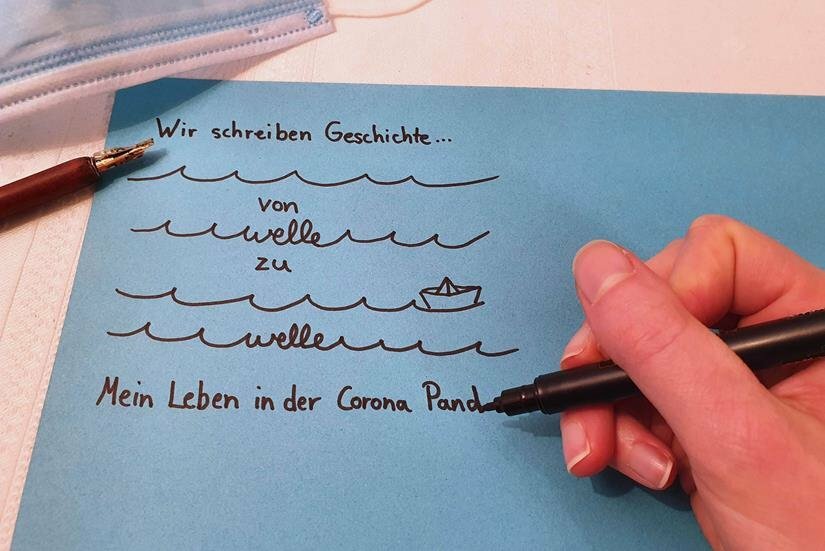 Wir schreiben Geschichte...
von
welle
zu
welle
Mein Leben in der Corona Pand